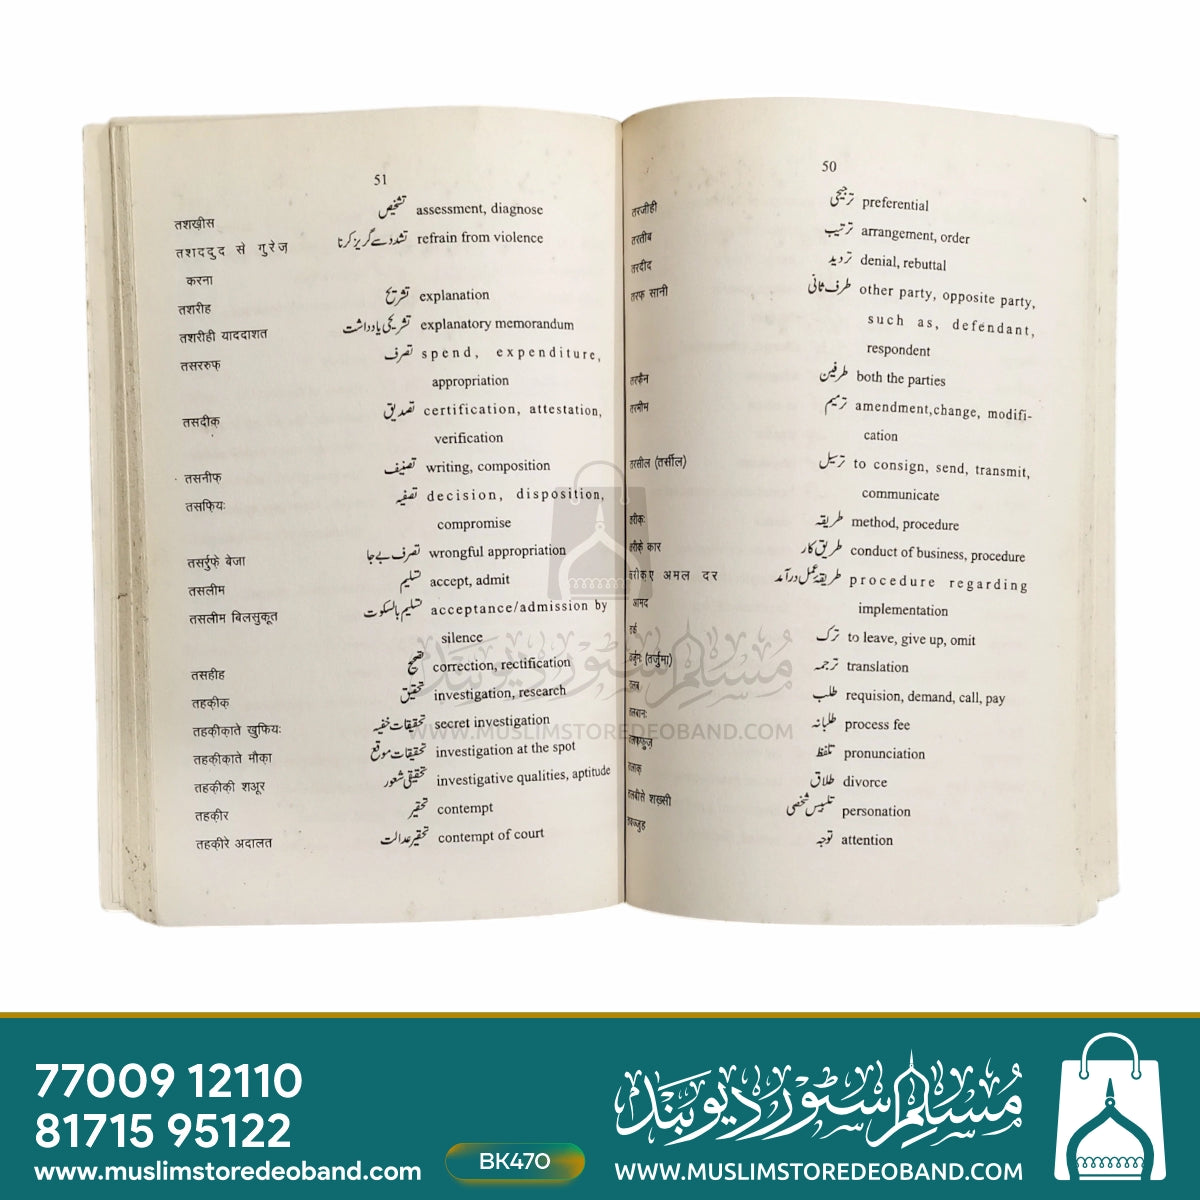 51
तशख़ीस تشخیص assessment, diagnose
तशददुद से गुरेज़ تشدد سے گریز کرنا refrain from violence
करना
तशरीह تشریح explanation
तशरीही याददाशत تشریحی یادداشت explanatory memorandum
तसररुफ़ تصرف spend, expenditure,
appropriation
तसदीक़ تصدیق certification, attestation,
verification
तसनीफ़ تصنیف writing, composition
तसफ़ियः تصفیہ decision, disposition,
compromise
तसर्रुफ़े बेजा تصرف بے جا wrongful appropriation
तसलीम تسلیم accept, admit
तसलीम बिलसुकूत تسلیم بالسکوت acceptance/admission by
silence
तसहीह تصحیح correction, rectification
तहक़ीक़ تحقیق investigation, research
तहक़ीक़ाते खुफियः تحقیقات خفیہ secret investigation
तहक़ीक़ाते मौक़ा تحقیقات موقع investigation at the spot
तहक़ीक़ी शऊर تحقیقی شعور investigative qualities, aptitude
तहक़ीर تحقیر contempt
तहक़ीरे अदालत تحقیر عدالت contempt of court
50
तरजीही ترجیحی preferential
तरतीब ترتیب arrangement, order
तरदीद تردید denial, rebuttal
तरफ़ सानी طرف ثانی other party, opposite party,
such as, defendant,
respondent
तरफ़ैन طرفین both the parties
तरमीम ترمیم amendment,change, modifi-
cation
तरसील (तर्सील) ترسیل to consign, send, transmit,
communicate
طریقہ method, procedure
कार طریق کار conduct of business, procedure
अमल दर طریقۂ عمل درآمد procedure regarding
आमद implementation
ترک to leave, give up, omit
(तर्जुमा) ترجمہ translation
طلب requision, demand, call, pay
طلبانہ process fee
تلفظ pronunciation
طلاق divorce
शख़्सी تلبیس شخصی personation
توجہ attention
مسلم سٹور دیوبند
WWW.MUSLIMSTOREDEOBAND.COM
77009 12110
81715 95122
www.muslimstoredeoband.com
BK470
مسلم سٹور دیوبند
WWW.MUSLIMSTOREDEOBAND.COM